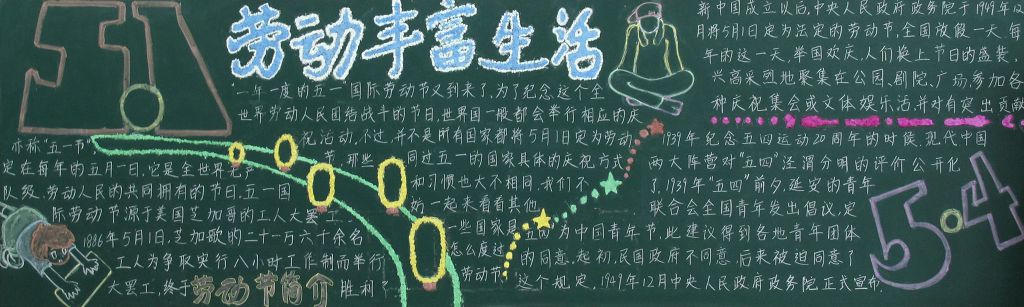 51
劳动丰富生活
亦称"五一节"
定在每年的五月一日,它是全世界无产
队级、劳动人民的共同拥有的节日,五一国
际劳动节源于美国芝加哥的工人大罢工.
1886年5月1日,芝加歌的二十一万六千余名
工人为争取实行八小时工作制而举行
大罢工,终于
胜利?
劳动节简介
"一年一度的"五一"国际劳动节又到来了,为了纪念这个全
世界劳动人民团结战斗的节日,世界国一般都会举行相应的庆
祝活动,不过,并不是所有国家都将5月1日定为劳动
节,那些
同过五一的国家具体的庆祝方式
和习惯也大不相同,我们不
妨一起来看看其他
一些国家是
怎么度过
劳动节
新中国成立以后,中央人民政府政务院于1949年12
月将5月1日定为法定的劳动节,全国放假一天.每
年的这一天.举国欢庆,人们换上节日的盛装,
兴高采烈地聚集在公园、剧院、广场,参加各
种庆祝集会或文体娱乐活并对有突出贡献
1939年纪念五四运动20周年的时候.现代中国
两大阵营对"五四"泾渭分明的评价公开化
了.1939年"五四"前夕,延安的青年
联合会全国青年发出倡议,定
五四为中国青年节,此建议得到各地青年团体
的同意,起初,民国政府不同意,后来被迫同意了
这个规定,1949年12月中央人民政府政务院正式宣布,
5·4